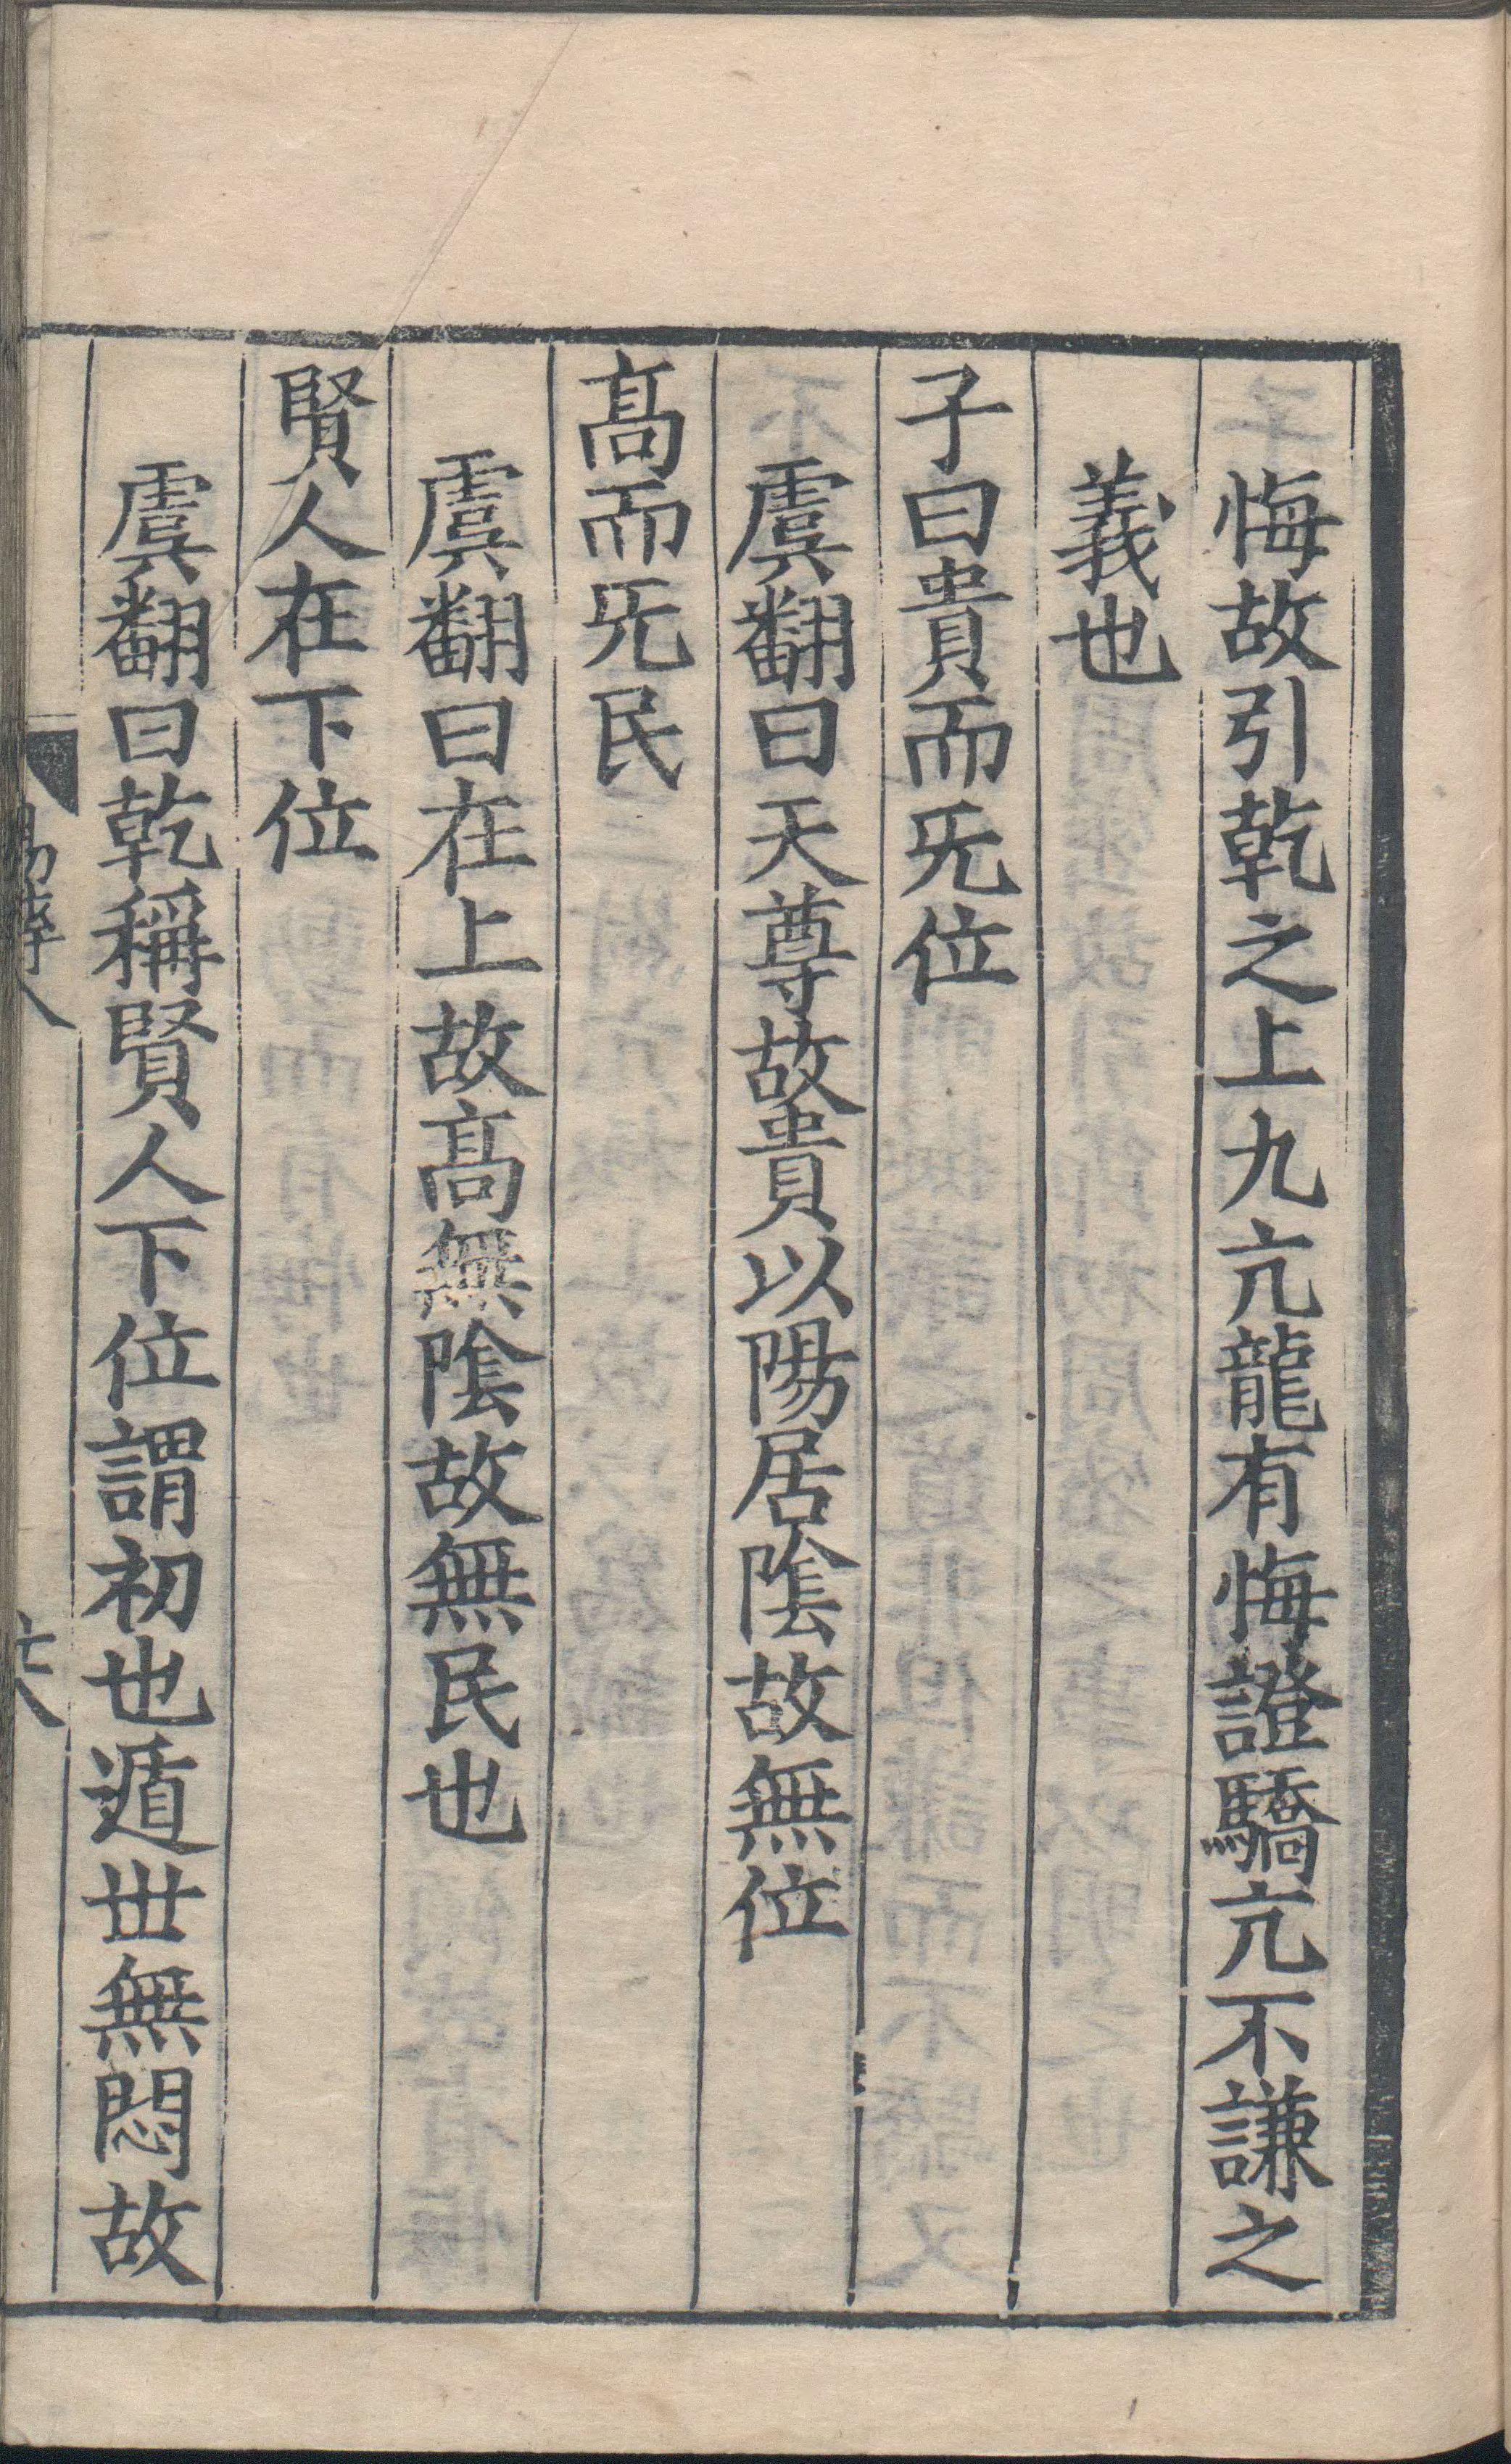 悔故引乾之上九亢龍有悔證驕亢不謙之
義也
子曰貴而旡位
虞翻曰天尊故貴以陽居隂故無位
髙而旡民
虞翻曰在上故髙無隂故無民也
賢人在下位
虞翻曰乾稱賢人下位謂初也遁丗無悶故